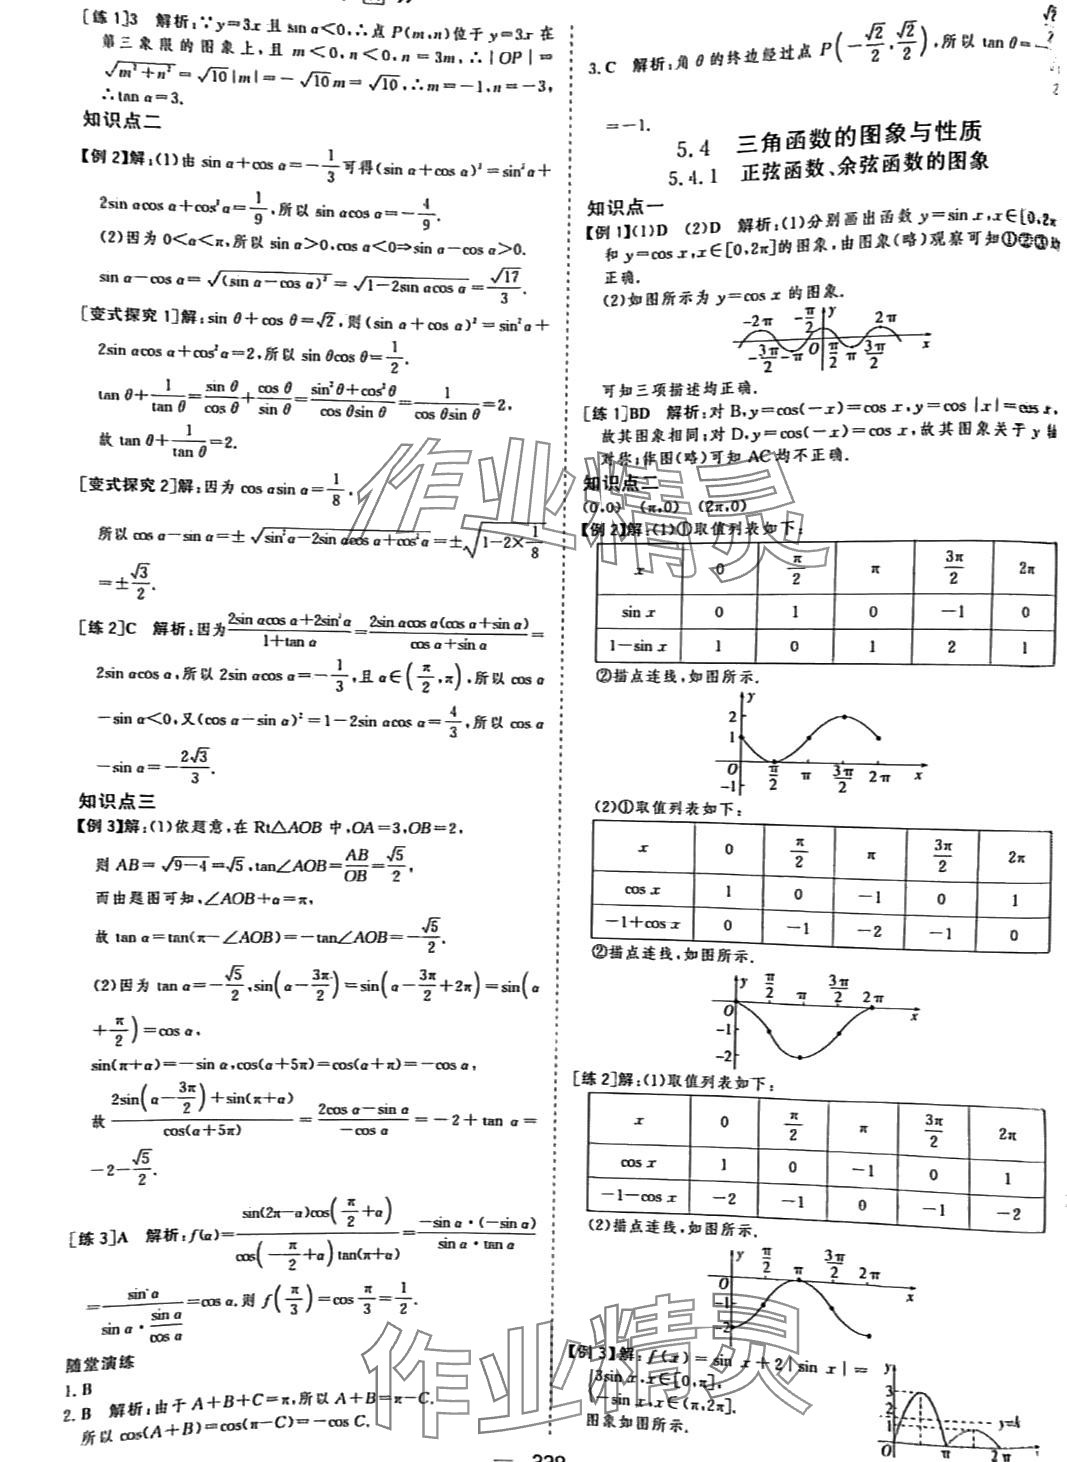 [练1]3 解析:∵y=3x 且 sin α<0,∴点 P(m,n)位于 y=3x 在
第三象限的图象上,且 m<0,n<0,n=3m,∴|OP|=
√(m²+n²)=√10|m|=-√10m=√10,∴m=-1,n=-3,
∴tan α=3.
知识点二
【例2】解:(1)由 sin α+cos α=-1/3可得(sin α+cos α)²=sin²α+
2sin αcos α+cos²α=1/9,所以 sin αcos α=-4/9.
(2)因为 0<α<π,所以 sin α>0,cos α<0⇒sin α-cos α>0.
sin α-cos α=√((sin α-cos α)²)=√(1-2sin αcos α)=√17/3.
[变式探究1]解:sin θ+cos θ=√2,则(sin α+cos α)²=sin²α+
2sin αcos α+cos²α=2,所以 sin θcos θ=1/2.
tan θ+1/tan θ=sin θ/cos θ+cos θ/sin θ=(sin²θ+cos²θ)/(cos θsin θ)=1/(cos θsin θ)=2,
故 tan θ+1/tan θ=2.
[变式探究2]解:因为 cos αsin α=1/8,
所以 cos α-sin α=±√(sin²α-2sin αcos α+cos²α)=±√(1-2×1/8)
=±√3/2.
[练2]C 解析:因为(2sin αcos α+2sin²α)/(1+tan α)=2sin αcos α(cos α+sin α)/(cos α+sin α)=
2sin αcos α,所以 2sin αcos α=-1/3,且 α∈(π/2,π),所以 cos α
-sin α<0,又(cos α-sin α)²=1-2sin αcos α=4/3,所以 cos α
-sin α=-2√3/3.
知识点三
【例3】解:(1)依题意,在 Rt△AOB 中,OA=3,OB=2,
则 AB=√(9-4)=√5,tan∠AOB=AB/OB=√5/2,
而由题图可知,∠AOB+α=π,
故 tan α=tan(π-∠AOB)=-tan∠AOB=-√5/2.
(2)因为 tan α=-√5/2,sin(α-3π/2)=sin(α-3π/2+2π)=sin(α
+π/2)=cos α,
sin(π+α)=-sin α,cos(α+5π)=cos(α+π)=-cos α,
故(2sin(α-3π/2)+sin(π+α))/cos(α+5π)=(2cos α-sin α)/(-cos α)=-2+tan α=
-2-√5/2.
[练3]A 解析:f(α)=sin(2π-α)cos(π/2+α)/(cos(-π/2+α)tan(π+α))=-sin α·(-sin α)/(sin α·tan α)
=sin α/(sin α·sin α/cos α)=cos α,则 f(π/3)=cos π/3=1/2.
随堂演练
1.B
2.B 解析:由于 A+B+C=π,所以 A+B=π-C,
所以 cos(A+B)=cos(π-C)=-cos C.
3.C 解析:角 θ 的终边经过点 P(-√2/2,√2/2),所以 tan θ=
=-1.
5.4 三角函数的图象与性质
5.4.1 正弦函数、余弦函数的图象
知识点一
【例1】(1)D (2)D 解析:(1)分别画出函数 y=sin x,x∈[0,2π
和 y=cos x,x∈[0,2π]的图象,由图象(略)观察可知①②③均
正确.
(2)如图所示为 y=cos x 的图象.
-2π -π/2 y 2π
-3π/2 -π O π/2 π 3π/2 x
可知三项描述均正确.
[练1]BD 解析:对 B,y=cos(-x)=cos x,y=cos |x|=cos x,
故其图象相同;对 D,y=cos(-x)=cos x,故其图象关于 y 轴
对称;作图(略)可知 AC 均不正确.
知识点二
(0,0) (π,0) (2π,0)
【例2】解:(1)①取值列表如下:
x 0 π/2 π 3π/2 2π
sin x 0 1 0 -1 0
1-sin x 1 0 1 2 1
②描点连线,如图所示.
y
2
1
O π/2 π 3π/2 2π x
-1
(2)①取值列表如下:
x 0 π/2 π 3π/2 2π
cos x 1 0 -1 0 1
-1+cos x 0 -1 -2 -1 0
②描点连线,如图所示.
y π/2 π 3π/2 2π
O x
-1
-2
[练2]解:(1)取值列表如下:
x 0 π/2 π 3π/2 2π
cos x 1 0 -1 0 1
-1-cos x -2 -1 0 -1 -2
(2)描点连线,如图所示.
y π/2 π 3π/2 2π
O x
-1
-2
【例3】解:f(x)=sin x+2|sin x|=
{3sin x,x∈[0,π],
-sin x,x∈(π,2π].
图象如图所示.
y
3
2
1 y=k
O π 2π
作业精灵
作业精灵